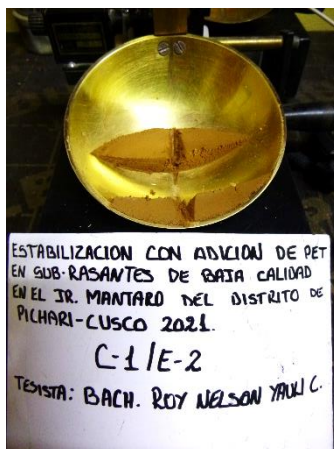 ESTABILIZACION CON ADICION DE PET
EN SUB-RASANTES DE BAJA CALIDAD
EN EL JR. MANTARO DEL DISTRITO DE
PICHARI-CUSCO 2021.
C-1/E-2
TESISTA: BACH. ROY NELSON YAULI C.